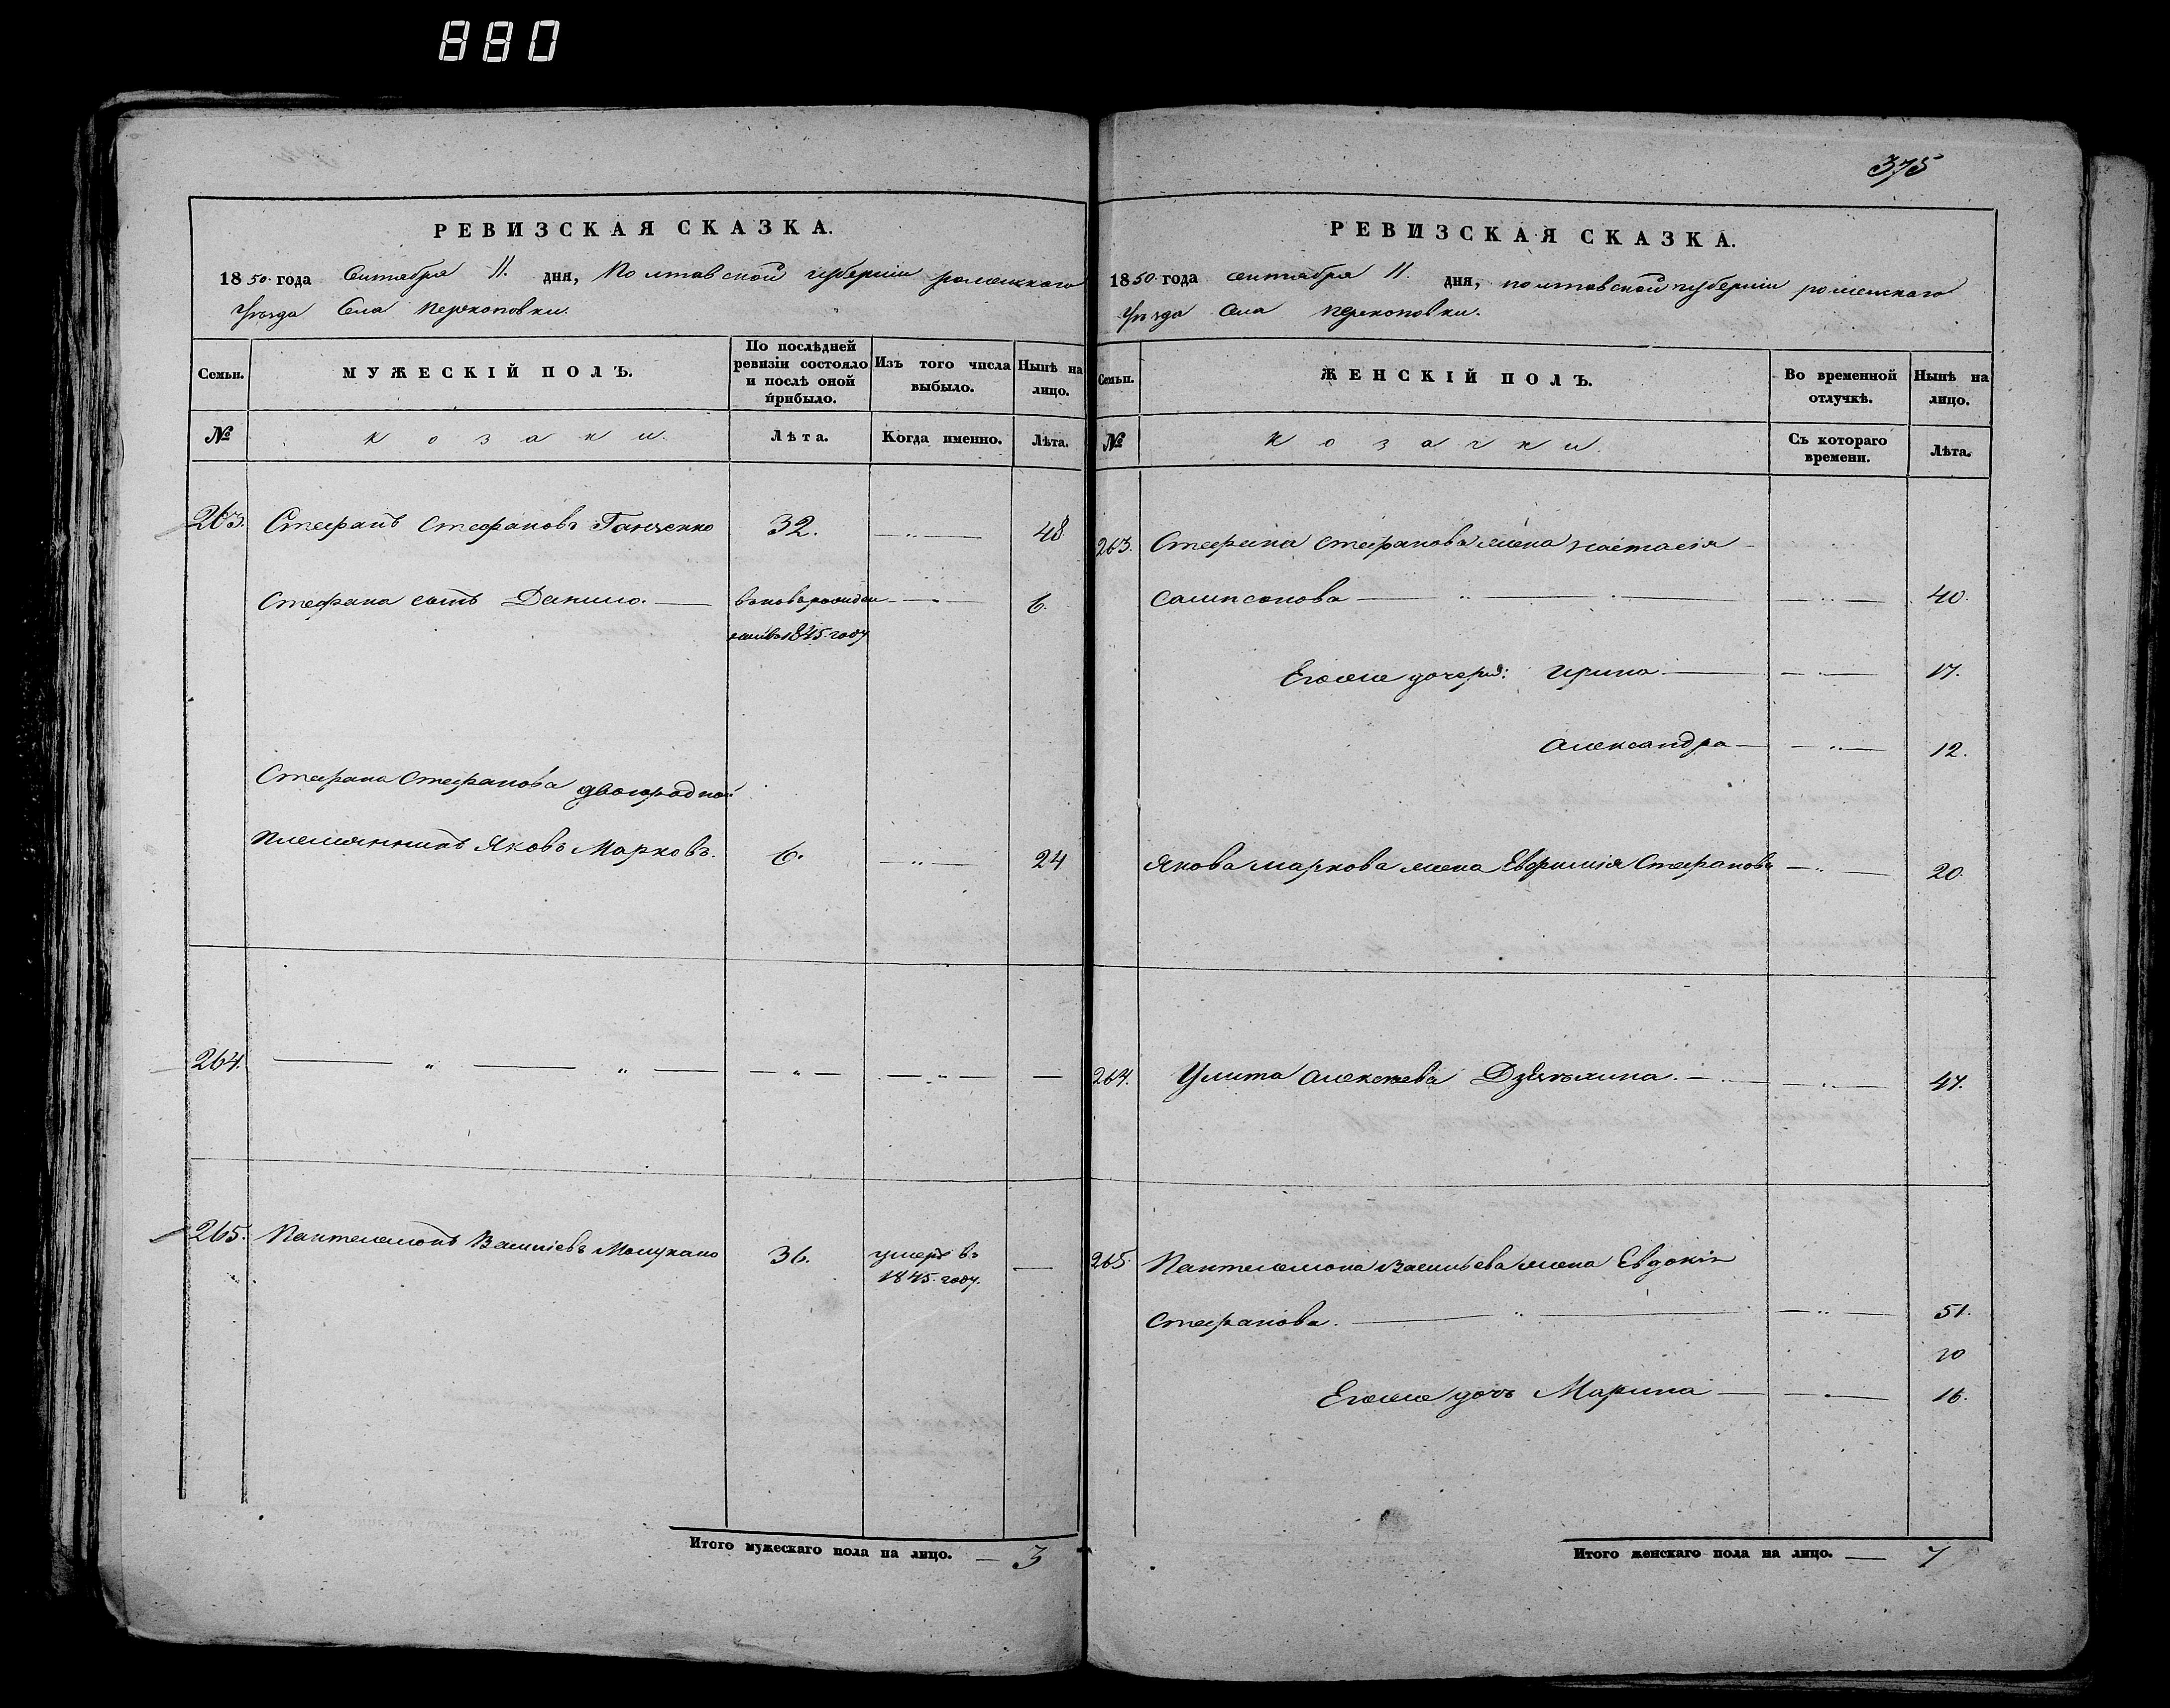 880
375
РЕВИЗСКАЯ СКАЗКА.
1850 года Сентября 11. дня, Полтавской губерніи роменского
Уѣзда Села Перекоповки.
Семьи.
МУЖЕСКІЙ ПОЛЪ.
По послѣдней ревизіи состояло и послѣ оной прибыло.
Изъ того числа выбыло.
Нынѣ на лицо.
№
козаки.
Лѣта.
Когда именно.
Лѣта.
263. Стефанъ Стефановъ Ганченко 32. 48
Стефана сынъ Данило. 6.
1845 году
Стефана Стефанова двоюродной
племянникъ Яковъ Марковъ. 6. 24
264.
265. Пантелемонъ Василіевъ 36. умеръ въ
1845. году.
Итого мужескаго пола на лицо. — 3
РЕВИЗСКАЯ СКАЗКА.
1850 года сентября 11 дня, полтавской губерніи роменскаго
Уѣзда Села перекоповки.
Семьи.
ЖЕНСКІЙ ПОЛЪ.
Во временной отлучкѣ.
Нынѣ на лицо.
№
козачки.
Съ котораго времени.
Лѣта.
263. Стефана Стефанова жена Настасія
Сампсонова 40.
Егоже дочери: Ирина 17.
Александра 12.
Якова Маркова жена Евфимія Стефанова 20.
264. Улита Алексѣева 47.
265. Пантелемона Васильева жена Евдокія
Стефанова. 51.
20
Егоже дочь Марина 16.
Итого женскаго пола на лицо. — 7